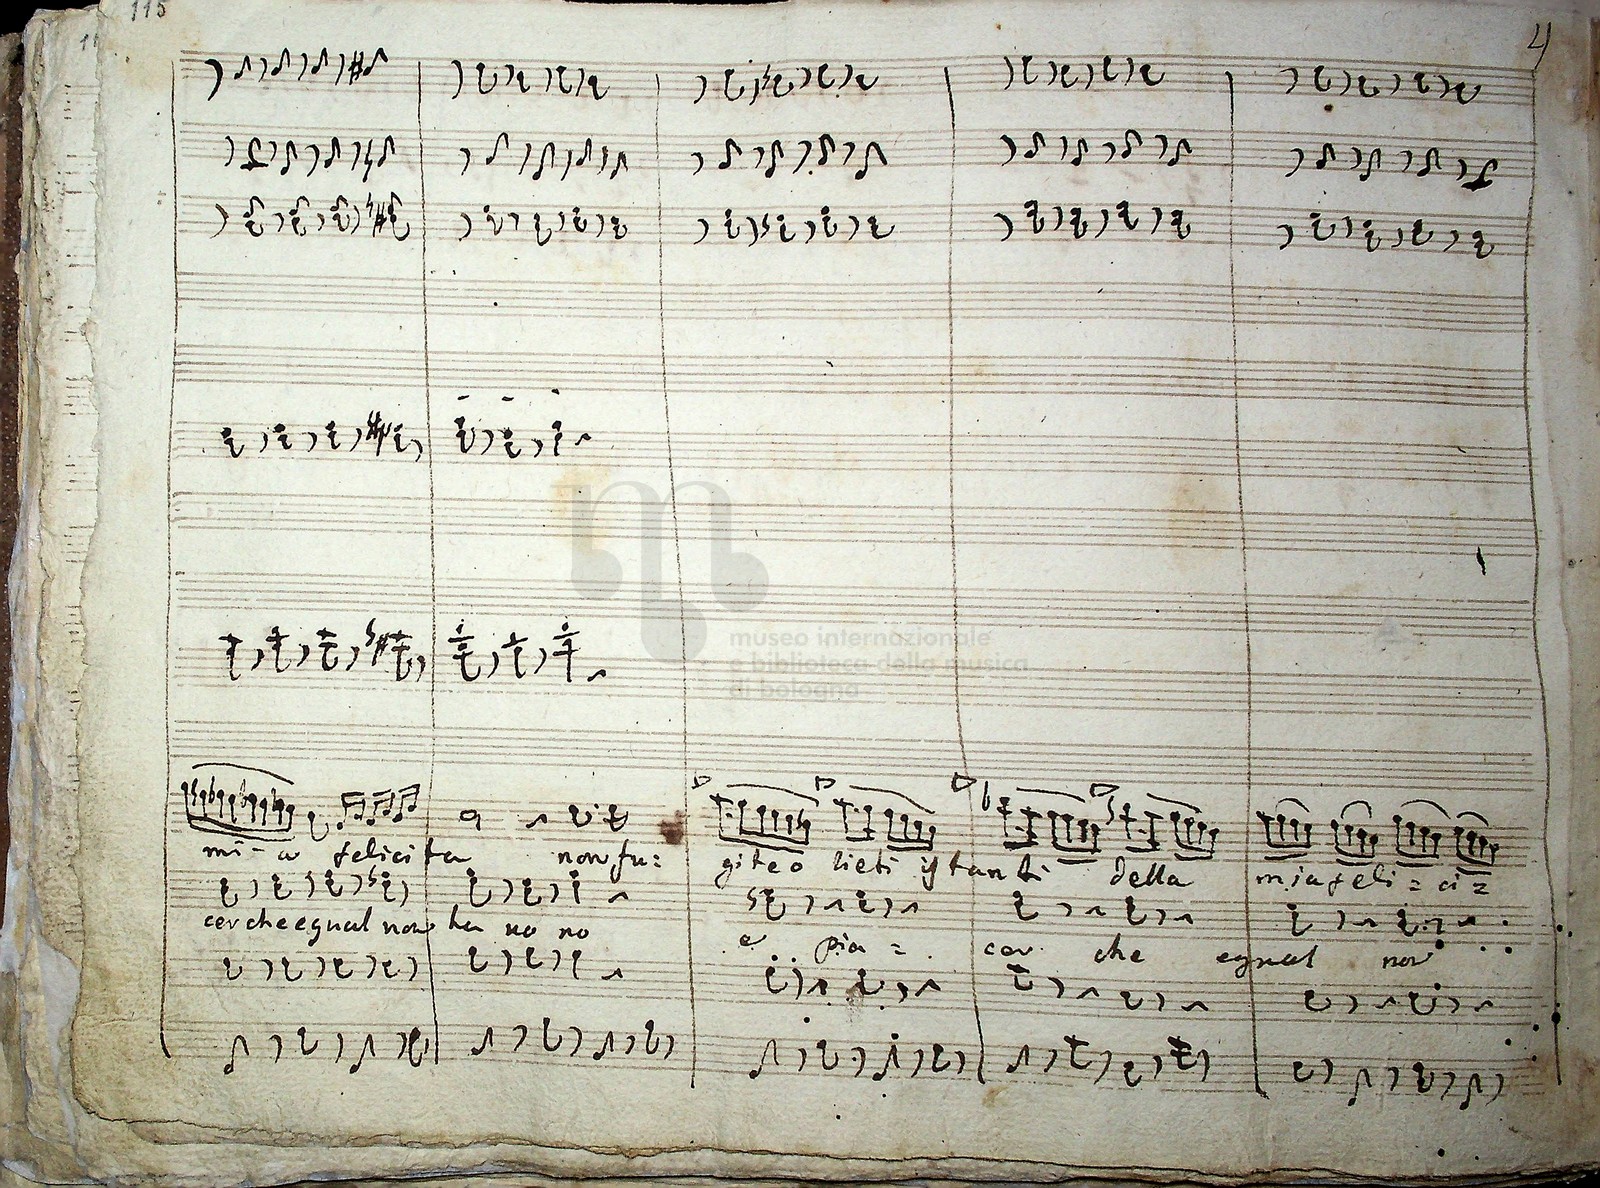 115
4
museo internazionale
e biblioteca della musica
di bologna
mi = a felicita non fu= gite o lieti istanti della mia feli = ci =
cer che egual non ha no no e pia = cer che egual non